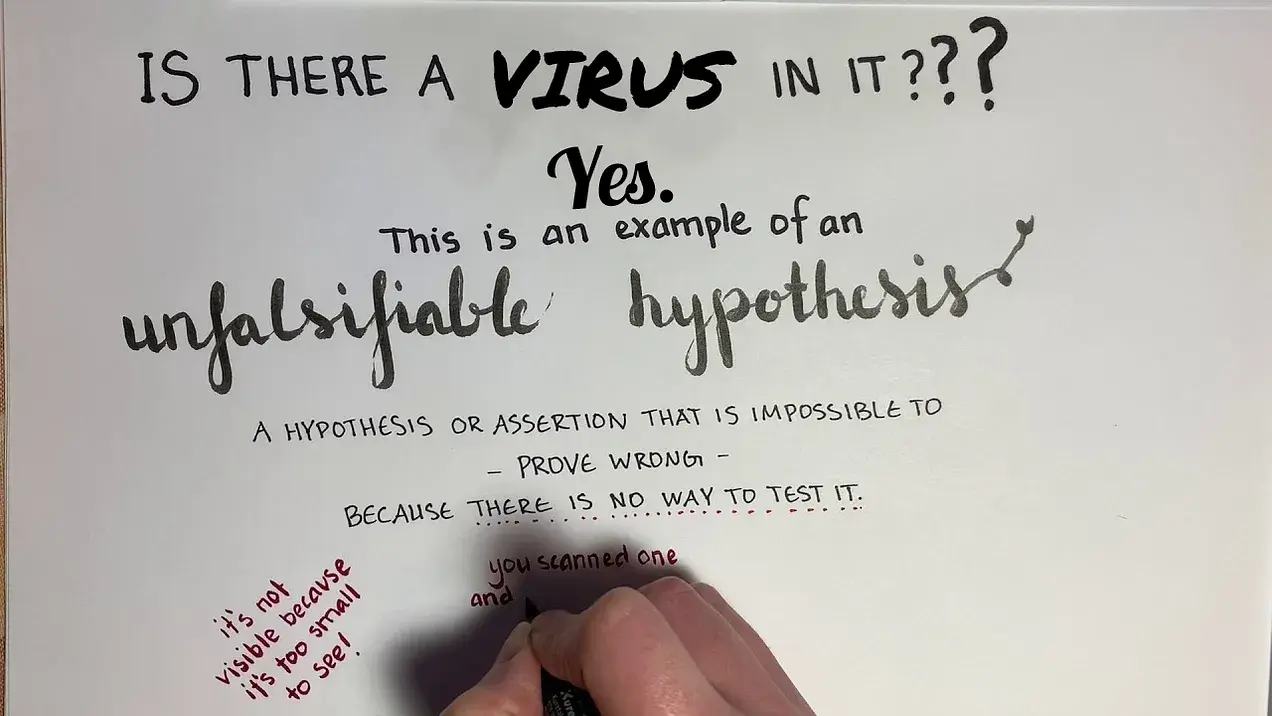 IS THERE A VIRUS IN IT???
Yes.
This is an example of an
unfalsifiable hypothesis
A HYPOTHESIS OR ASSERTION THAT IS IMPOSSIBLE TO
- PROVE WRONG -
BECAUSE THERE IS NO WAY TO TEST IT.
it's not
visible because
it's too small
to see!
you scanned one
and